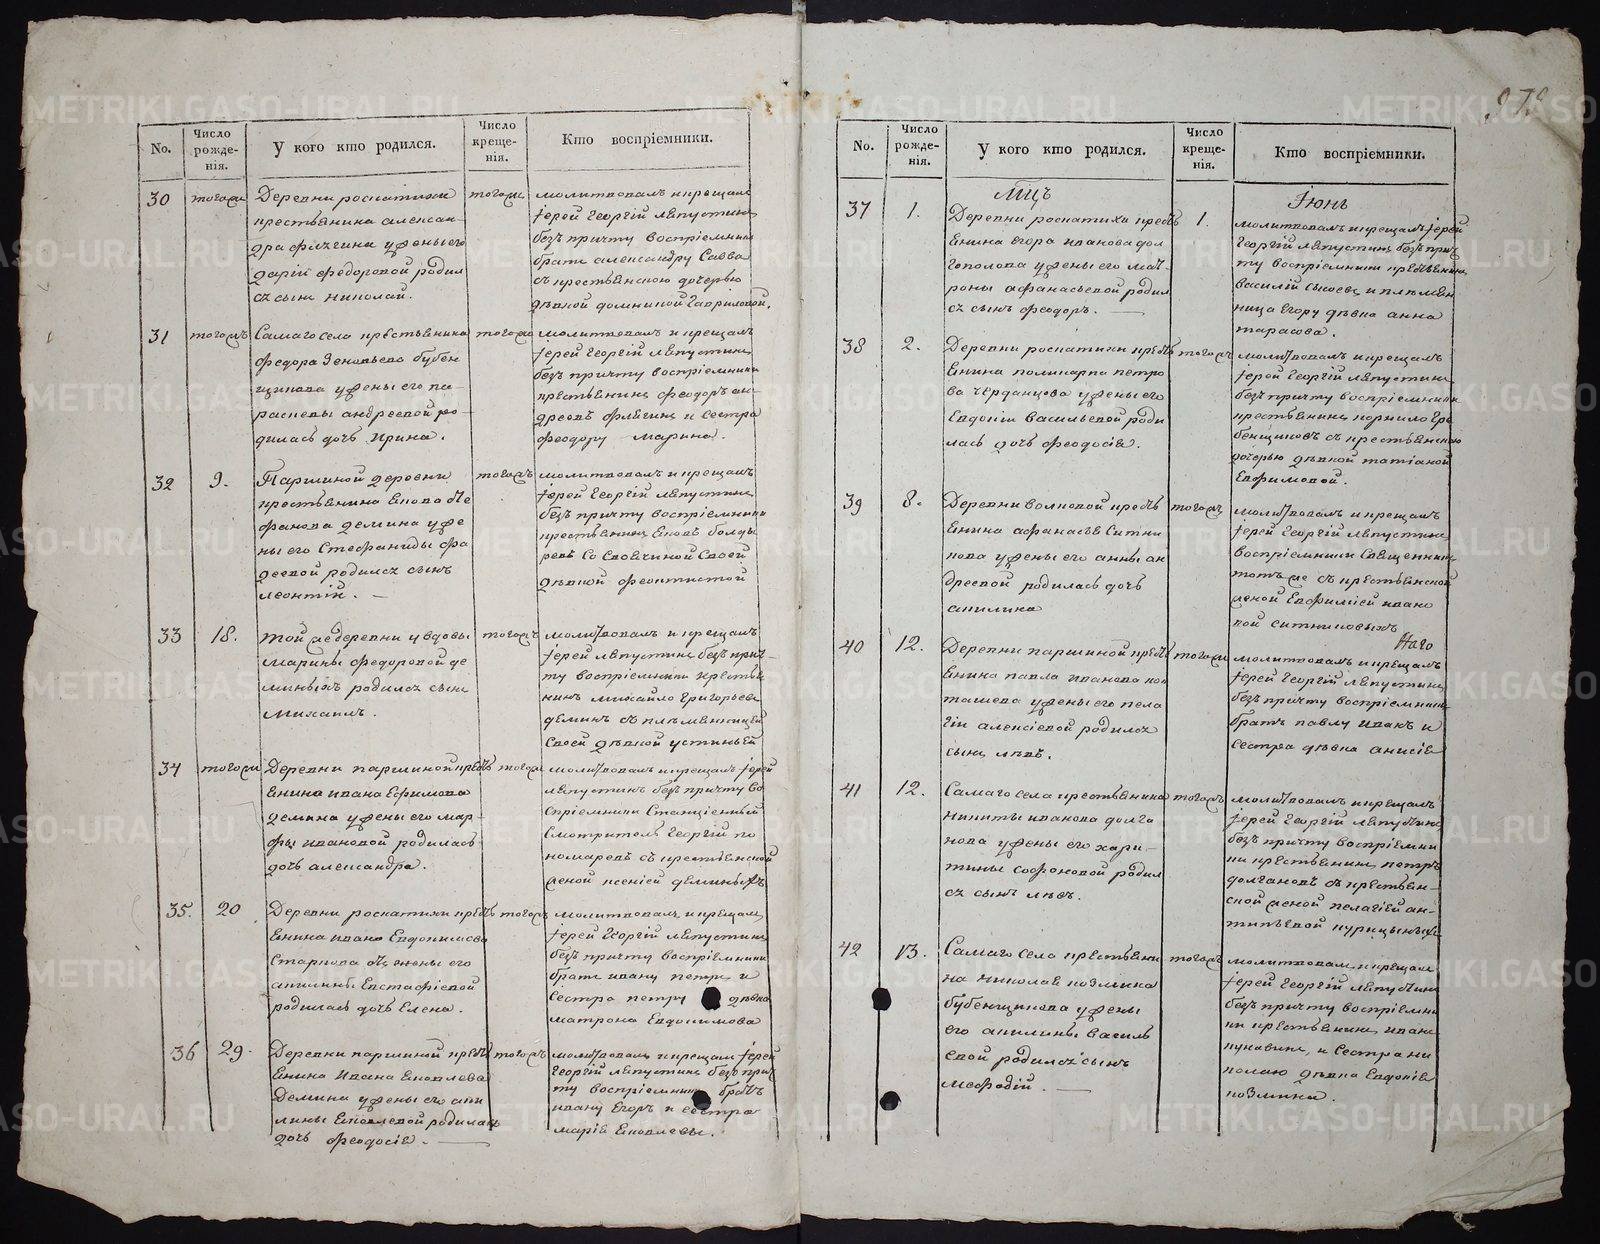 No.
Число рожде-нія.
У кого кто родился.
Число креще-нія.
Кто воспріемники.
30
тогожъ
Деревни роскатихи
крестьянина алексан-
дра флягина у жены его
дарьи федоровой родил
ся сынъ николай.
тогожъ
молитвовалъ и крещалъ
іерей Георгій ляпустинъ
безъ причту воспріемники
братъ александру Савва
съ крестьянскою дочерью
дѣвкой домникой Гавриловой.
31
тогожъ
Самаго села крестьянина
федора Зеновьева бубен
щикова у жены его па-
расковьи андреевой ро-
дилась дочь ирина.
тогожъ
молитвовалъ и крещалъ
іерей Георгій ляпустинъ
безъ причту воспріемники
крестьянинъ феодоръ ан-
дреевъ флягинъ и сестра
феодору марина.
32
9.
Паршиной деревни
крестьянина Якова Сте
фанова демина у же
ны его Стефаниды фа
деевой родился сынъ
леонтій.
тогожъ
молитвовалъ и крещалъ
іерей Георгій ляпустинъ
безъ причту воспріемники
крестьянинъ Яковъ болды
ревъ со своячиной своей
дѣвкой феоктистой
33
18.
той же деревни у вдовы
Марины федоровой де
миныхъ родился сынъ
Михаилъ.
тогожъ
молитвовалъ и крещалъ
іерей ляпустинъ безъ прич-
ту воспріемники крестья
нинъ михайло Григорьевъ
деминъ съ племянницей
своей дѣвкой устиньей
34
тогожъ
Деревни паршиной крестъ
янина ивана Ефимова
демина у жены его мар-
фы ивановой родилась
дочь александра.
тогожъ
молитвовалъ и крещалъ іерей
ляпустинъ безъ причту во
спріемники станціенный
смотритель Георгій по
номаревъ съ крестьянской
женой ксеніей деминыхъ
35.
20
Деревни роскатихи крестъ
янина ивана Евдокимова
Старкова отъ жены его
акилины Евстафіевой
родилась дочь Елена.
тогожъ
молитвовалъ и крещалъ
іерей Георгій ляпустинъ
безъ причту воспріемники
братъ ивану петръ и
сестра петру дѣвка
матрона Евдокимова
36
29.
Деревни паршиной крестъ
янина Ивана Яковлева
Демина у жены его аки
лины Яковлевой родилась
дочь феодосія.
тогожъ
молитвовалъ и крещалъ іерей
Георгій ляпустинъ безъ прич
ту воспріемники братъ
ивану Егоръ и сестра
марія Яковлевы.
No.
Число рожде-нія.
У кого кто родился.
Число креще-нія.
Кто воспріемники.
Мцъ
Іюнь
37
1.
Деревни роскатихи крестъ
янина Егора иванова дол
гополова у жены его мат-
роны афанасьевой родил
ся сынъ феодоръ.
1.
молитвовалъ и крещалъ іерей
Георгій ляпустинъ безъ прич
ту воспріемники крестьянинъ
василій сысоевъ и племян
ница Егору дѣвка анна
тарасова.
38
2.
Деревни роскатихи крестъ
янина поликарпа петро
ва черданцова у жены его
Евдокіи васильевой роди
лась дочь феодосія.
тогожъ
молитвовалъ и крещалъ
іерей Георгій ляпустинъ
безъ причту воспріемники
крестьянинъ корнило Гре
бенщиковъ съ крестьянскою
дочерью дѣвкой татіаной
Ефимовой.
39
8.
Деревни волковой крестъ
янина афанасья Ситни
кова у жены его анны ан
дреевой родилась дочь
акилина
тогожъ
молитвовалъ и крещалъ
іерей Георгій ляпустинъ
воспріемники Священникъ
тотъ же съ крестьянской
женой Евфиміей ивано
вой ситниковыхъ
40
12.
Деревни паршиной крестъ
янина павла иванова
у жены его пела
гіи алексіевой родился
сынъ левъ.
тогожъ
молитвовалъ и крещалъ
іерей Георгій ляпустинъ
безъ причту воспріемники
братъ павлу иванъ и
сестра дѣвка анисія
41
12.
Самаго села крестьянина
никиты иванова долга
нова у жены его хари-
тины софоновой родил
ся сынъ левъ.
тогожъ
молитвовалъ и крещалъ
іерей Георгій ляпустинъ
безъ причту воспріемни
ки крестьянинъ петръ
долгановъ съ крестьян-
ской женой пелагіей ан-
типьевой курицыныхъ
42
13.
Самаго села крестьяни
на николая козмина
бубенщикова у жены
его акилины василь
евой родился сынъ
мефодій.
тогожъ
молитвовалъ и крещалъ
іерей Георгій ляпустинъ
безъ причту воспріемни
ки крестьянинъ иванъ
пукавинъ, и сестра ни
колаю дѣвка Евдокія
козмина.